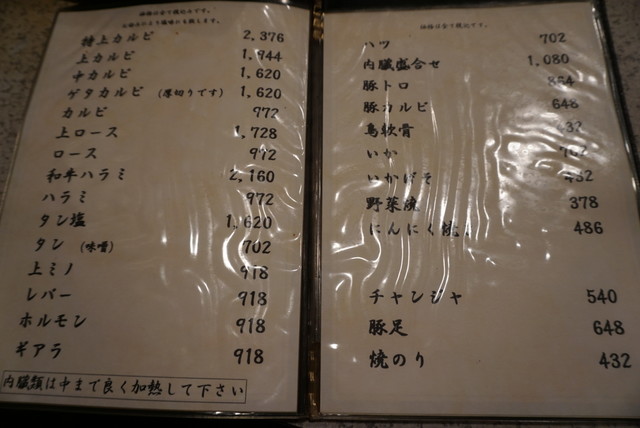 価格は全て税込です。
お好みにより塩味にも致します。
特上カルビ 2,376
上カルビ 1,944
中カルビ 1,620
ゲタカルビ (厚切りです) 1,620
カルビ 772
上ロース 1,728
ロース 972
和牛ハラミ 2,160
ハラミ 972
タン塩 1,620
タン (味噌) 702
上ミノ 918
レバー 918
ホルモン 918
ギアラ 918
内臓類は中まで良く加熱して下さい
価格は全て税込です。
ハツ 702
内臓盛合せ 1,080
豚トロ 864
豚カルビ 648
鳥軟骨 432
いか 702
いかげそ 432
野菜焼 378
にんにく焼 486
チャンジャ 540
豚足 648
焼のり 432